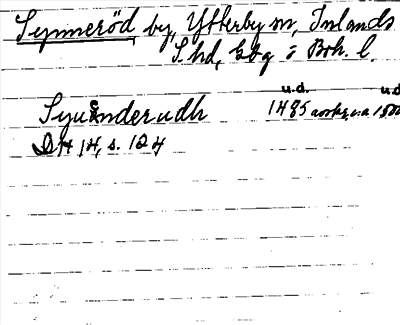 Synneröd by, Ytterby sn, Inlands
S. hd, Gbg o Boh. l.
u.d. u.d.
Syuenderudh 1485 avskr. u.a. 1500
DN 14, s. 124